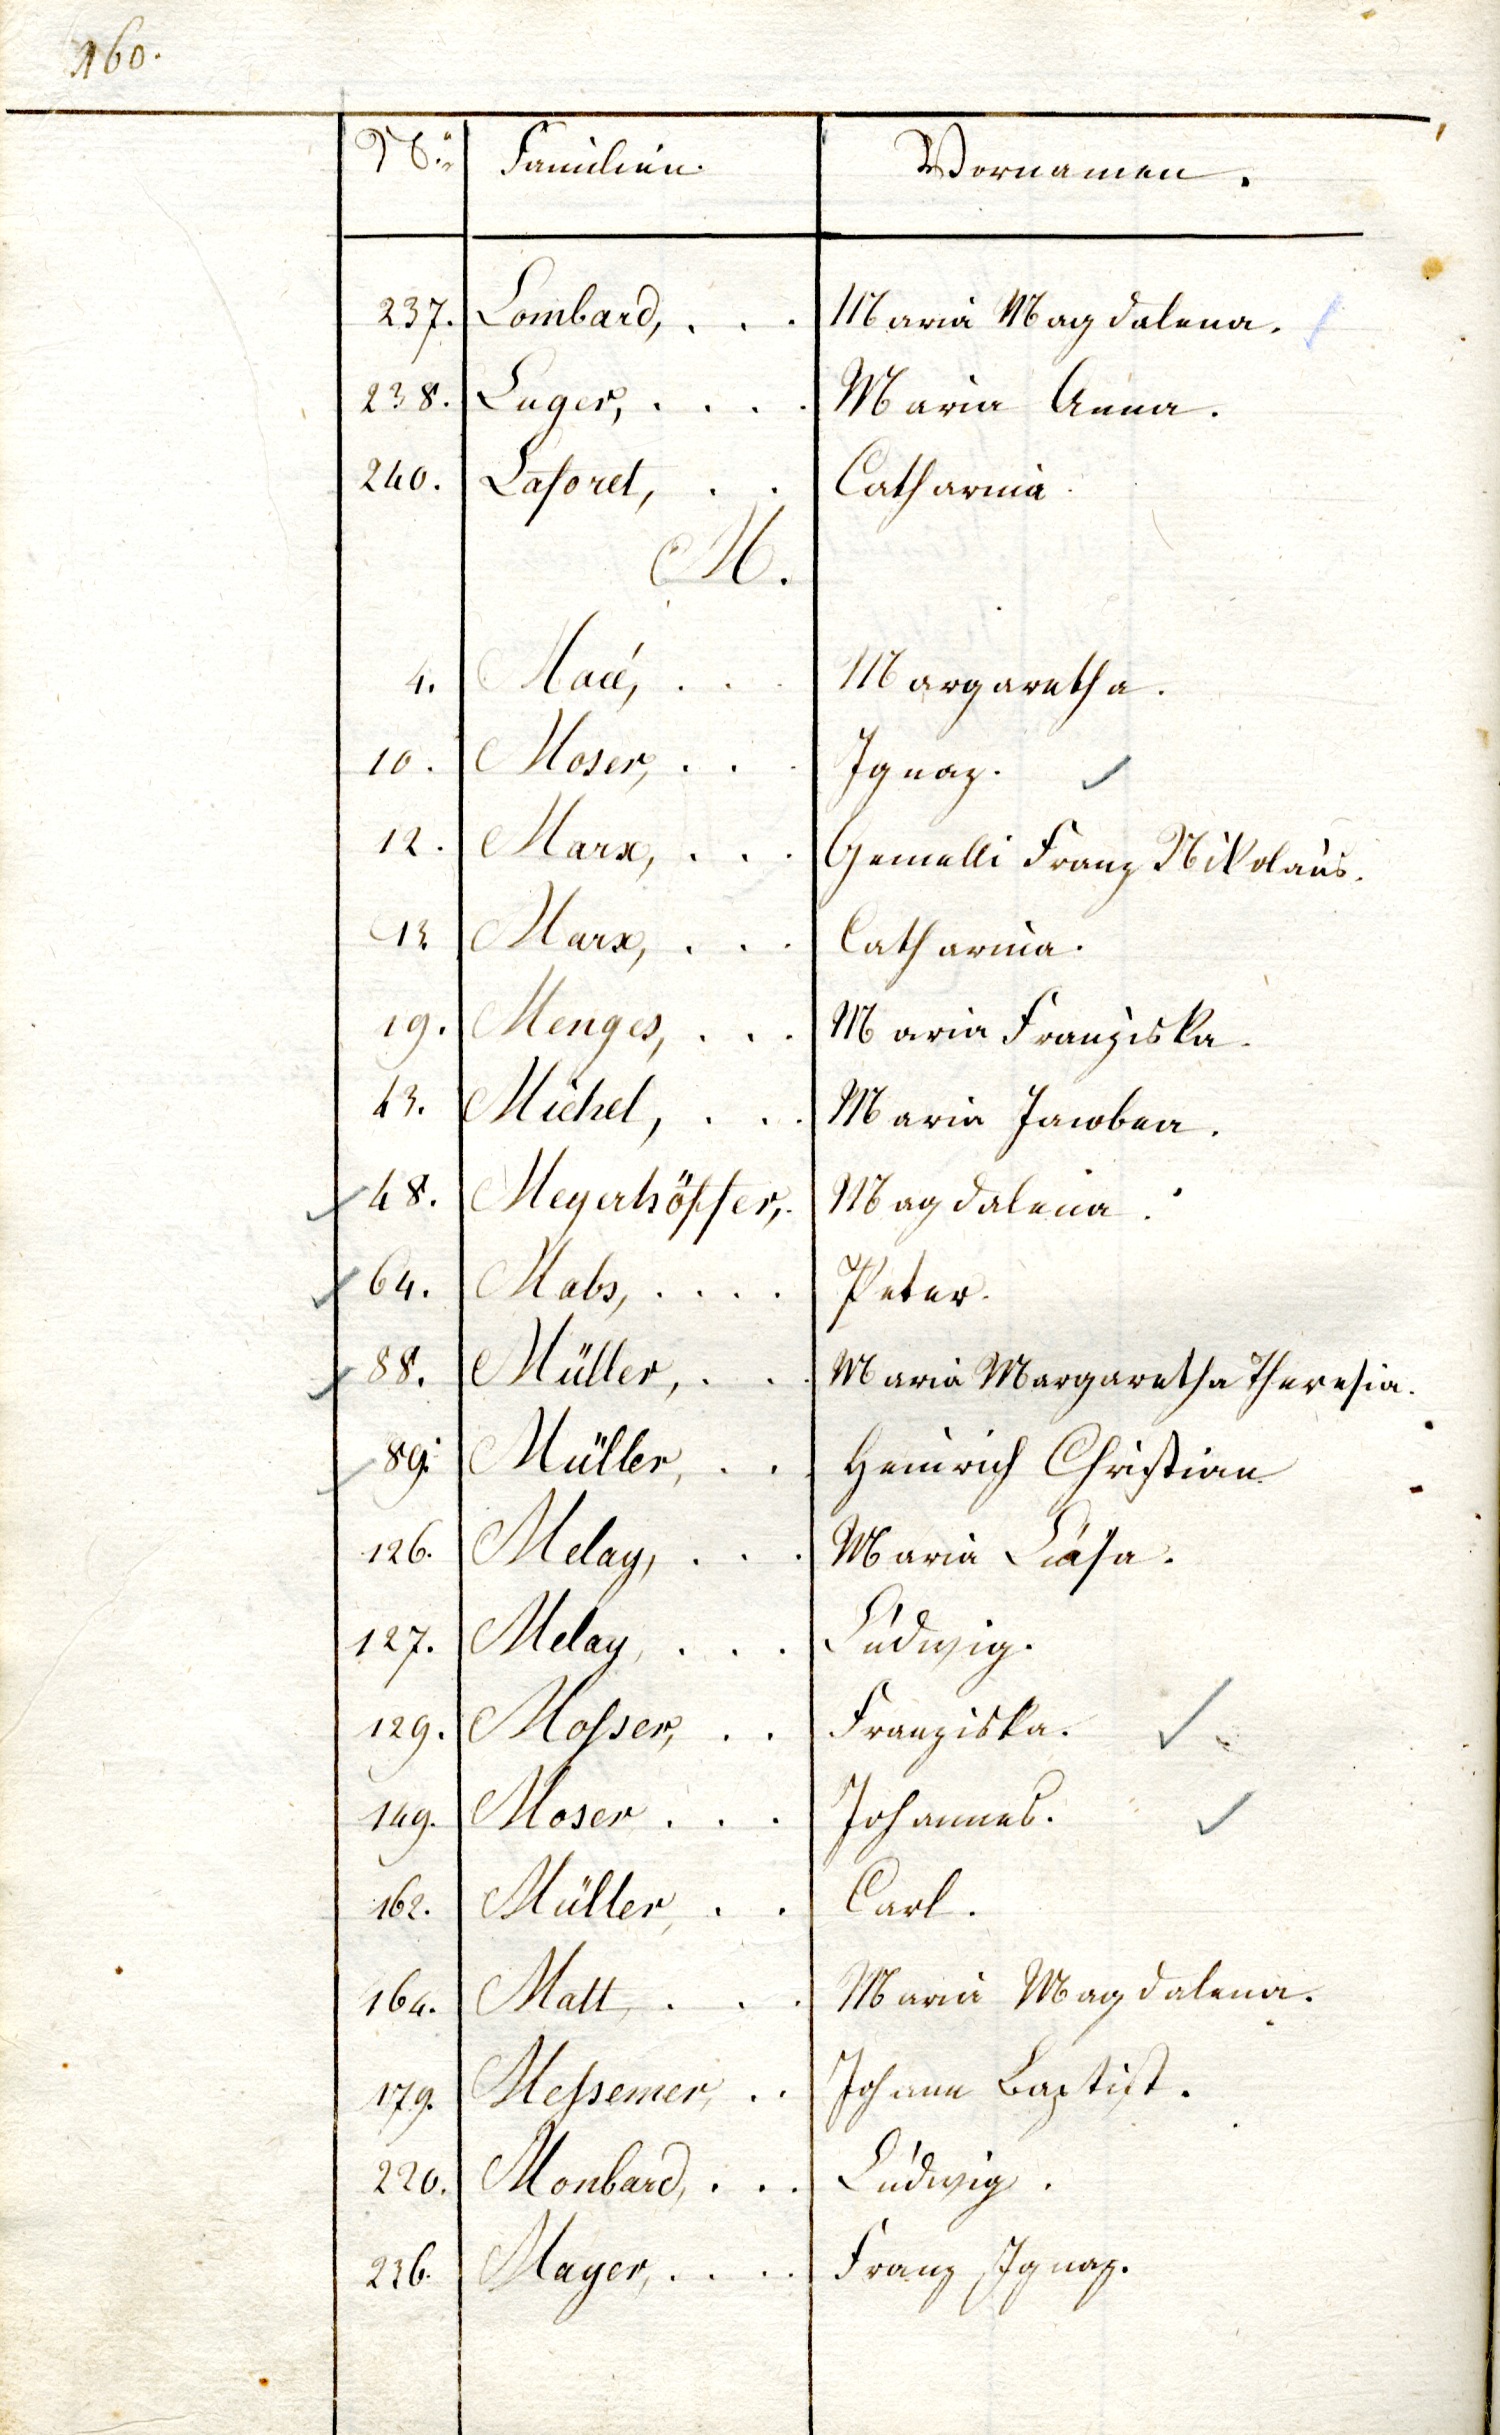 160.
No. Familien. Vornamen.
237. Lombard, . . . Maria Magdalena.
238. Luger, . . . . Maria Anna.
240. Laforet, . . Catharina.
M.
4. Macé, . . . Margaretha.
10. Moser, . . . Ignaz.
12. Marx, . . . Gemelli Franz Nikolaus.
13. Marx, . . . Catharina.
19. Menges, . . . Maria Franziska.
43. Michel, . . . Maria Jacobea.
48. Meyerhöffer, . Magdalena.
64. Mabs, . . . . Peter.
88. Müller, . . . Maria Margaretha Theresia.
89. Müller, . . . Heinrich Christian
126. Melay, . . . Maria
127. Melay, . . . Ludwig.
129. Moſser, . . Franziska.
149. Moser . . . Johannes.
162. Müller, . . Carl.
164. Matt, . . . Maria Magdalena.
179. Meſsemer, . . Johann Baptist.
220. Monbard, . . . Ludwig.
236. Mayer, . . . . Franz Ignaz.